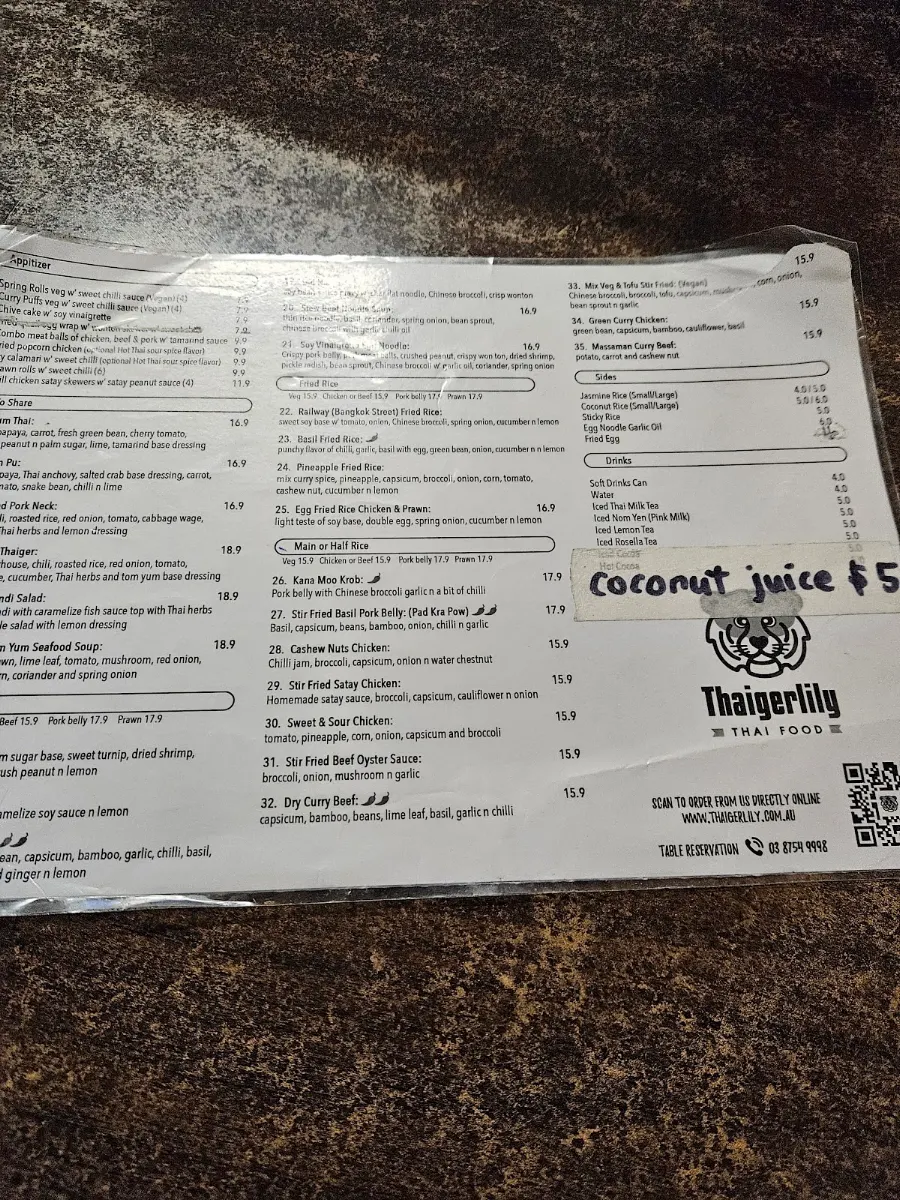 Appitizer
Spring Rolls veg w' sweet chilli sauce (Vegan) (4)
Curry Puffs veg w' sweet chilli sauce (Vegan) (4) 7.9
Chive cake w' soy vinaigrette 7.9
egg wrap w' 7.9
ombo meat balls of chicken, beef & pork w' tamarind sauce 9.9
ried popcorn chicken (optional Hot Thai sour spice flavor) 9.9
y calamari w' sweet chilli (optional Hot Thai sour spice flavor) 9.9
awn rolls w' sweet chilli (6) 9.9
ill chicken satay skewers w' satay peanut sauce (4) 11.9
o Share
um Thai: 16.9
apaya, carrot, fresh green bean, cherry tomato,
peanut n palm sugar, lime, tamarind base dressing
n Pu: 16.9
paya, Thai anchovy, salted crab base dressing, carrot,
nato, snake bean, chilli n lime
d Pork Neck: 16.9
li, roasted rice, red onion, tomato, cabbage wage,
Thai herbs and lemon dressing
Thaiger: 18.9
house, chili, roasted rice, red onion, tomato,
e, cucumber, Thai herbs and tom yum base dressing
ndi Salad: 18.9
ndi with caramelize fish sauce top with Thai herbs
le salad with lemon dressing
n Yum Seafood Soup: 18.9
wn, lime leaf, tomato, mushroom, red onion,
rn, coriander and spring onion
Beef 15.9 Pork belly 17.9 Prawn 17.9
m sugar base, sweet turnip, dried shrimp,
ush peanut n lemon
amelize soy sauce n lemon
ean, capsicum, bamboo, garlic, chilli, basil,
d ginger n lemon
noodle, Chinese broccoli, crisp wonton
20. Stew Beef Noodle Soup: 16.9
thin rice noodle, basil, coriander, spring onion, bean sprout,
chinese broccoli with garlic chili oil
21. Soy Vinaigrette Noodle: 16.9
Crispy pork belly, balls, crushed peanut, crispy won ton, dried shrimp,
pickle radish, bean sprout, Chinese broccoli w' garlic oil, coriander, spring onion
Fried Rice
Veg 15.9 Chicken or Beef 15.9 Pork belly 17.9 Prawn 17.9
22. Railway (Bangkok Street) Fried Rice:
sweet soy base w' tomato, onion, Chinese broccoli, spring onion, cucumber n lemon
23. Basil Fried Rice:
punchy flavor of chilli, garlic, basil with egg, green bean, onion, cucumber n n lemon
24. Pineapple Fried Rice:
mix curry spice, pineapple, capsicum, broccoli, onion, corn, tomato,
cashew nut, cucumber n lemon
25. Egg Fried Rice Chicken & Prawn: 16.9
light teste of soy base, double egg, spring onion, cucumber n lemon
Main or Half Rice
Veg 15.9 Chicken or Beef 15.9 Pork belly 17.9 Prawn 17.9
26. Kana Moo Krob: 17.9
Pork belly with Chinese broccoli garlic n a bit of chilli
27. Stir Fried Basil Pork Belly: (Pad Kra Pow) 17.9
Basil, capsicum, beans, bamboo, onion, chilli n garlic
28. Cashew Nuts Chicken: 15.9
Chilli jam, broccoli, capsicum, onion n water chestnut
29. Stir Fried Satay Chicken: 15.9
Homemade satay sauce, broccoli, capsicum, cauliflower n onion
30. Sweet & Sour Chicken: 15.9
tomato, pineapple, corn, onion, capsicum and broccoli
31. Stir Fried Beef Oyster Sauce: 15.9
broccoli, onion, mushroom n garlic
32. Dry Curry Beef: 15.9
capsicum, bamboo, beans, lime leaf, basil, garlic n chilli
33. Mix Veg & Tofu Stir Fried: (Vegan) 15.9
Chinese broccoli, broccoli, tofu, capsicum, corn, onion,
bean sprout n garlic
34. Green Curry Chicken: 15.9
green bean, capsicum, bamboo, cauliflower, basil
35. Massaman Curry Beef: 15.9
potato, carrot and cashew nut
Sides
Jasmine Rice (Small/Large) 4.0/5.0
Coconut Rice (Small/Large) 5.0/6.0
Sticky Rice 5.0
Egg Noodle Garlic Oil 6.0
Fried Egg
Drinks
Soft Drinks Can 4.0
Water 4.0
Iced Thai Milk Tea 5.0
Iced Nom Yen (Pink Milk) 5.0
Iced Lemon Tea 5.0
Iced Rosella Tea 5.0
Iced Cocoa 5.0
Hot Cocoa
coconut juice $5
Thaigerlily
THAI FOOD
SCAN TO ORDER FROM US DIRECTLY ONLINE
WWW.THAIGERLILY.COM.AU
TABLE RESERVATION 03 8754 9998